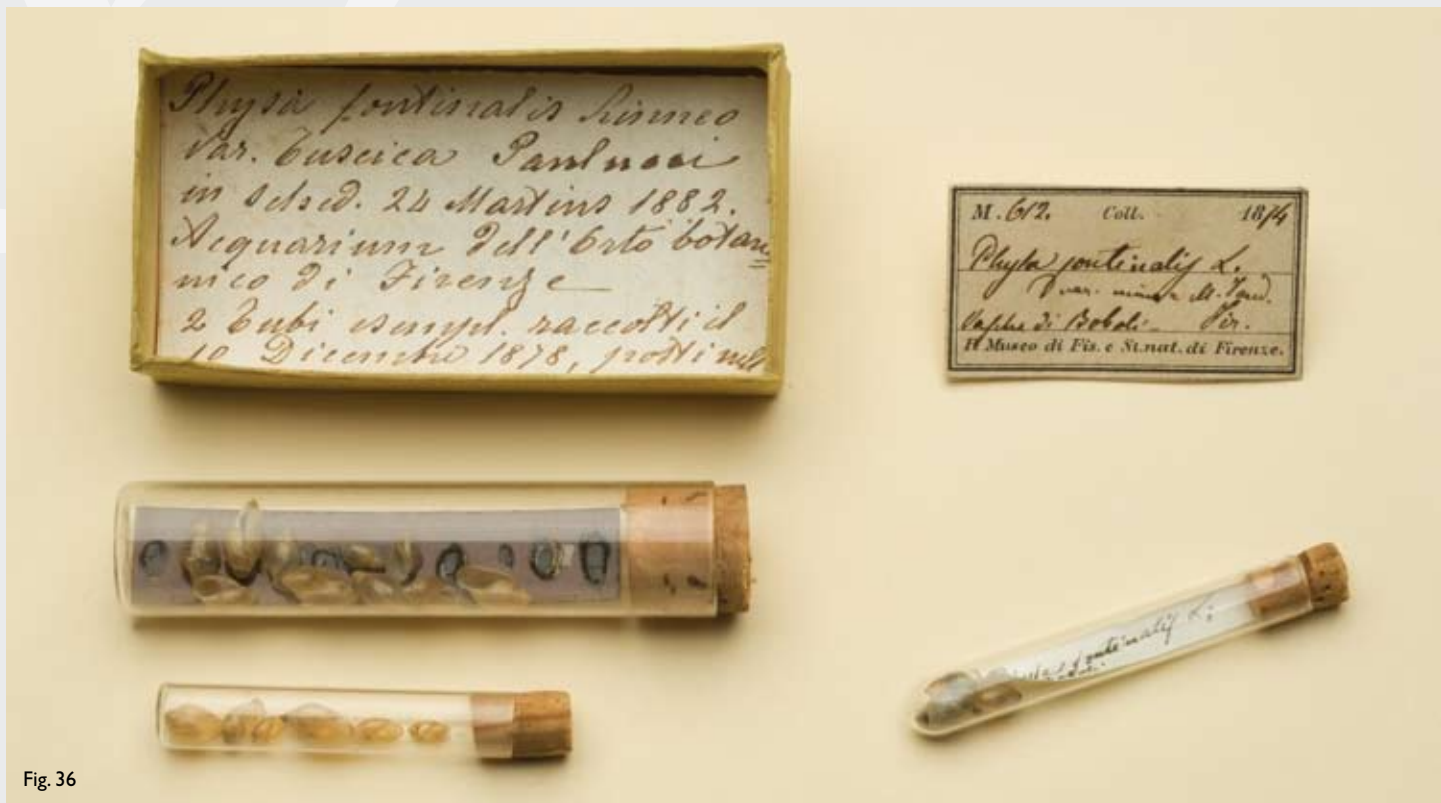 Physa fontinalis Linneo
Var. tuscica Paulucci
in sched. 24 Martius 1882.
Acquarium dell'Orto botan=
nico di Firenze
2 tubi esempl. raccolti il
10 Dicembre 1878, posti
M. 612. Coll. 1874
Physa fontinalis L.
var. minor M.
di Boboli - Fir.
R. Museo di Fis. e St. nat. di Firenze.
fontinalis L.
Fig. 36